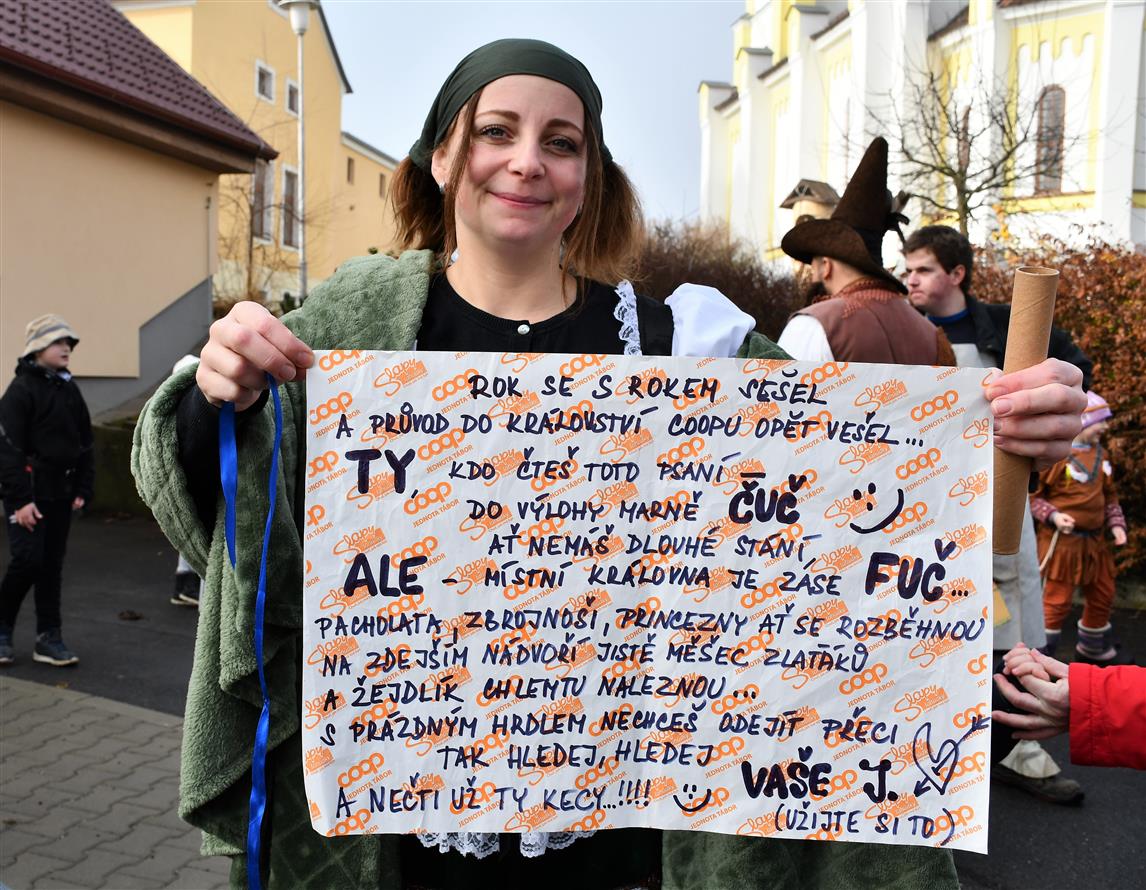 ROK SE S ROKEM SEŠEL
A PRŮVOD DO KRÁLOVSTVÍ COOPU OPĚT VEŠEL...
TY, KDO ČTEŠ TOTO PSANÍ
DO VÝLOHY MARNĚ ČUČ
AŤ NEMÁŠ DLOUHÉ STÁNÍ,
ALE - MÍSTNÍ KRÁLOVNA JE ZÁSE FUČ...
PACHOLATA, ZBROJNOŠI, PRINCEZNY AŤ SE ROZBĚHNOU
NA ZDEJŠÍM NÁDVOŘÍ JISTĚ MĚŠEC ZLAŤÁKŮ
A ŽEJDLÍK CHLEMTU NALEZNOU...
S PRÁZDNÝM HRDLEM NECHCEŠ ODEJÍT PŘECI
TAK HLEDEJ, HLEDEJ
A NEČTI UŽ TY KECY...!!!!
VAŠE J.
(UŽIJTE SI TO)
coop
JEDNOTA TÁBOR
Slapy